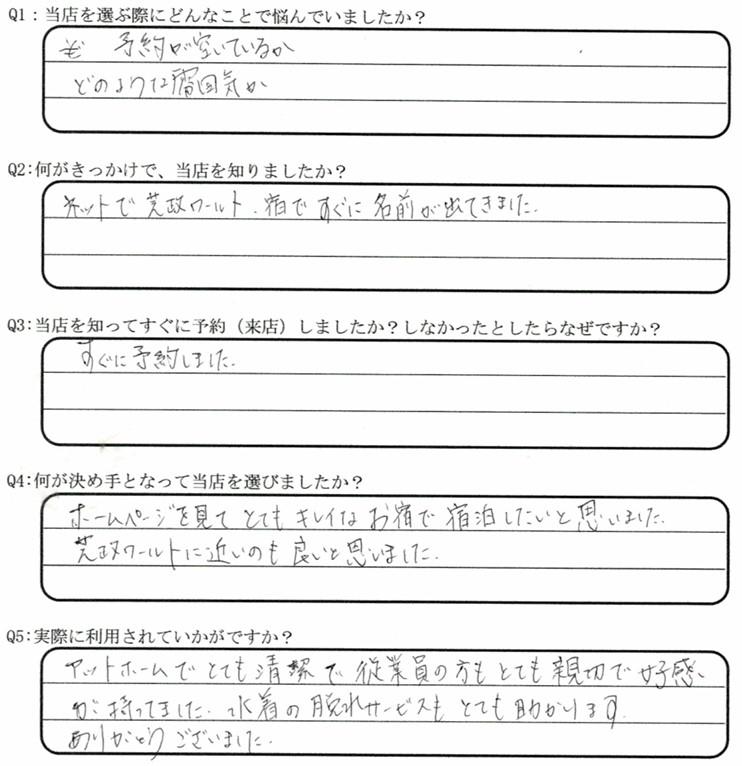 Q1：当店を選ぶ際にどんなことで悩んでいましたか？
予約が空いているか
どのような雰囲気か
Q2：何がきっかけで、当店を知りましたか？
ネットで芝政ワールド、宿ですぐに名前が出てきました。
Q3：当店を知ってすぐに予約（来店）しましたか？しなかったとしたらなぜですか？
すぐに予約しました。
Q4：何が決め手となって当店を選びましたか？
ホームページを見てとてもキレイなお宿で宿泊したいと思いました。
芝政ワールドに近いのも良いと思いました。
Q5：実際に利用されていかがですか？
アットホームでとても清潔で従業員の方もとても親切で好感
が持てました。水着の脱水サービスもとても助かります。
ありがとうございました。